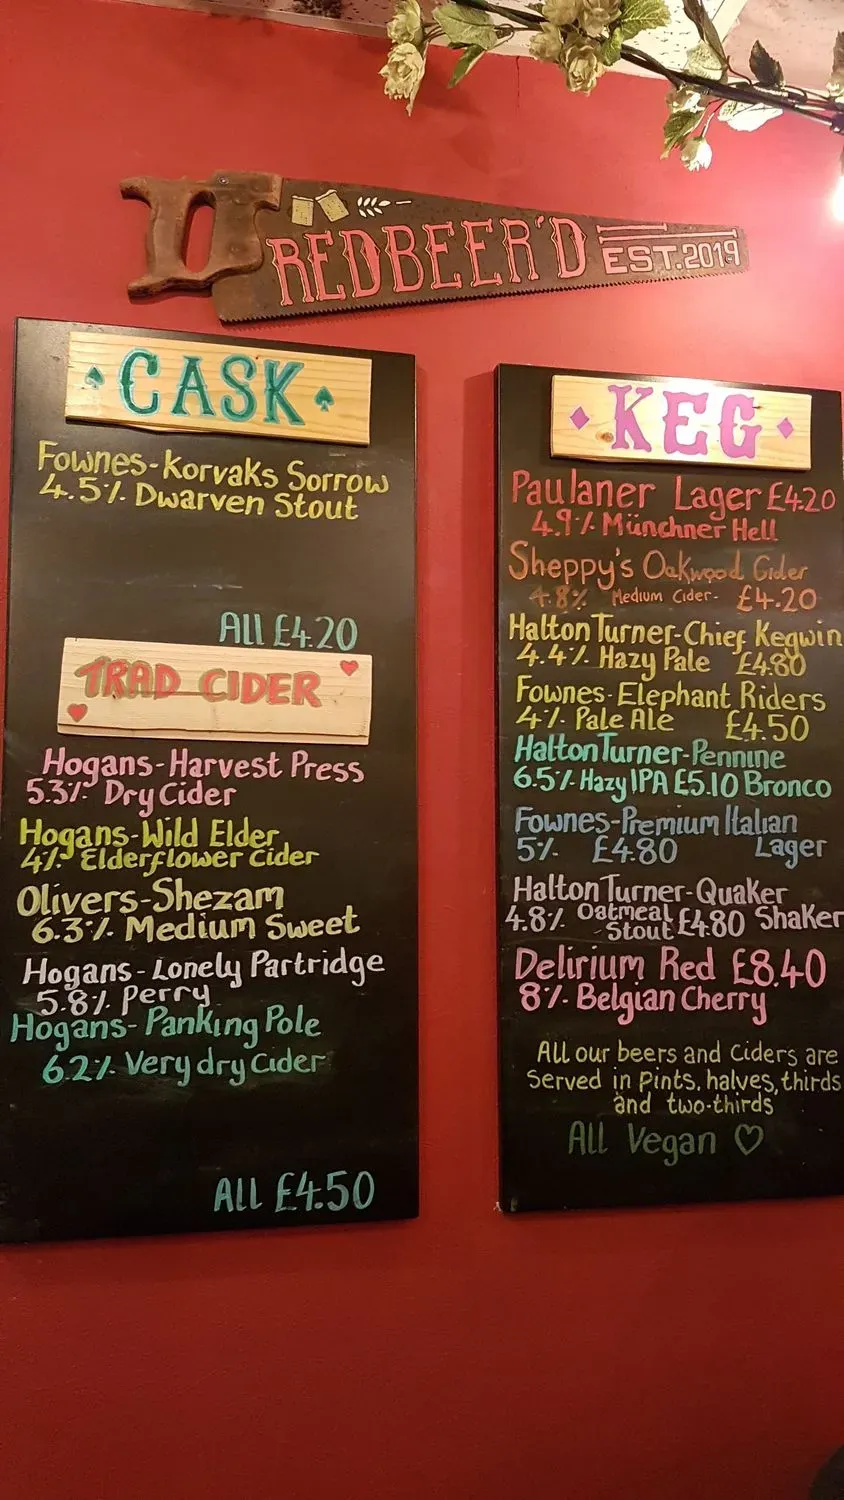 REDBEER'D EST.2019
CASK
Fownes-Korvaks Sorrow
4.5% Dwarven Stout
All £4.20
TRAD CIDER
Hogans-Harvest Press
5.3% Dry Cider
Hogans-Wild Elder
4% Elderflower Cider
Olivers-Shezam
6.3% Medium Sweet
Hogans-Lonely Partridge
5.8% Perry
Hogans-Panking Pole
6.2% Very dry Cider
All £4.50
KEG
Paulaner Lager £4.20
4.9% Münchner Hell
Sheppy's Oakwood Cider
4.8% Medium Cider- £4.20
Halton Turner-Chief Kegwin
4.4% Hazy Pale £4.80
Fownes-Elephant Riders
4% Pale Ale £4.50
Halton Turner-Pennine
6.5% Hazy IPA £5.10 Bronco
Fownes-Premium Italian
5% £4.80 Lager
Halton Turner-Quaker
4.8% Oatmeal Stout £4.80 Shaker
Delirium Red £8.40
8% Belgian Cherry
All our beers and Ciders are
Served in Pints, halves, thirds
and two-thirds
All Vegan